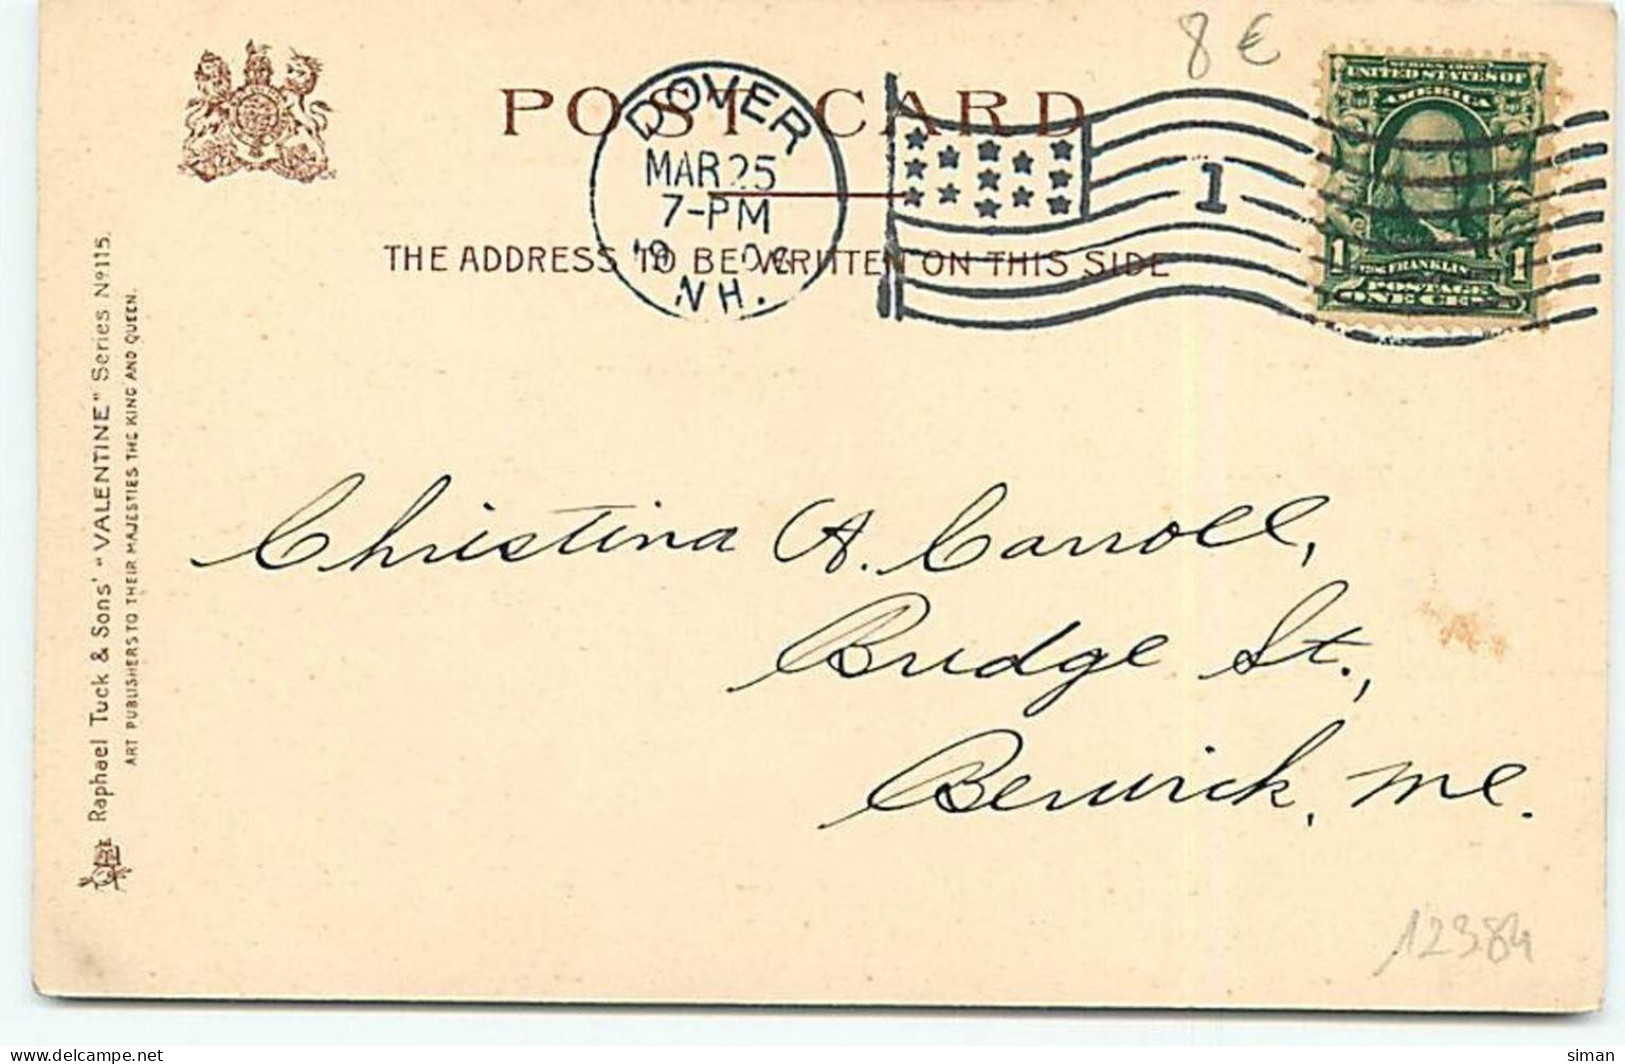 8 €
POST CARD
DOVER
MAR 25
7-PM
N.H.
1
SERIES 1902
UNITED STATES OF
AMERICA
1 FRANKLIN 1
POSTAGE
ONE CENT
THE ADDRESS TO BE WRITTEN ON THIS SIDE
Raphael Tuck & Sons' "VALENTINE" Series Nº 115.
ART PUBLISHERS TO THEIR MAJESTIES THE KING AND QUEEN.
Christina A. Carroll,
Bridge St.,
Berwick, Me.
12384
delcampe.net
siman